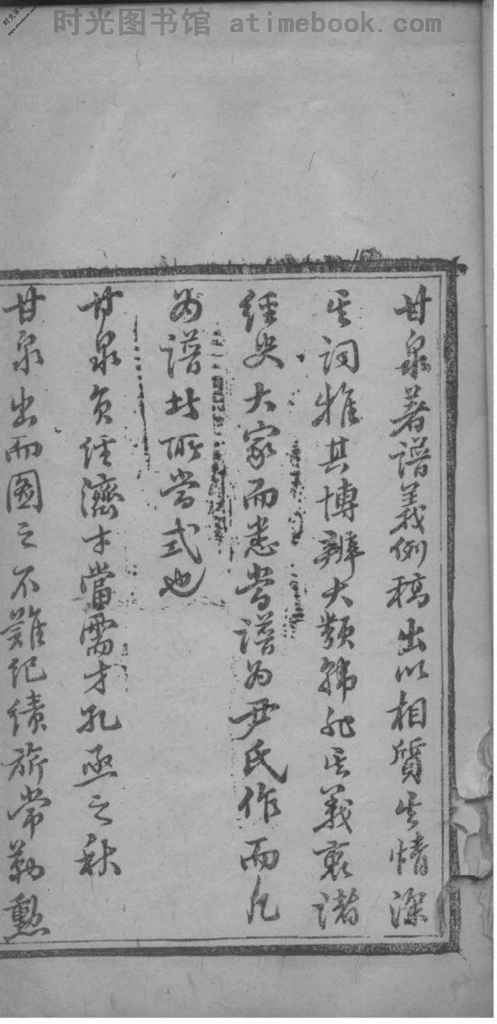 时光图书馆 atimebook.com
甘泉著谱義例稿出以相質其情深
其詞雅其博辨大類韩非其義衷諸
經史大家而悉當譜為尹氏作而凡
为譜者所當式也
甘泉負经濟才當需才孔亟之秋
甘泉出而圖之不難纪績旂常勒勲